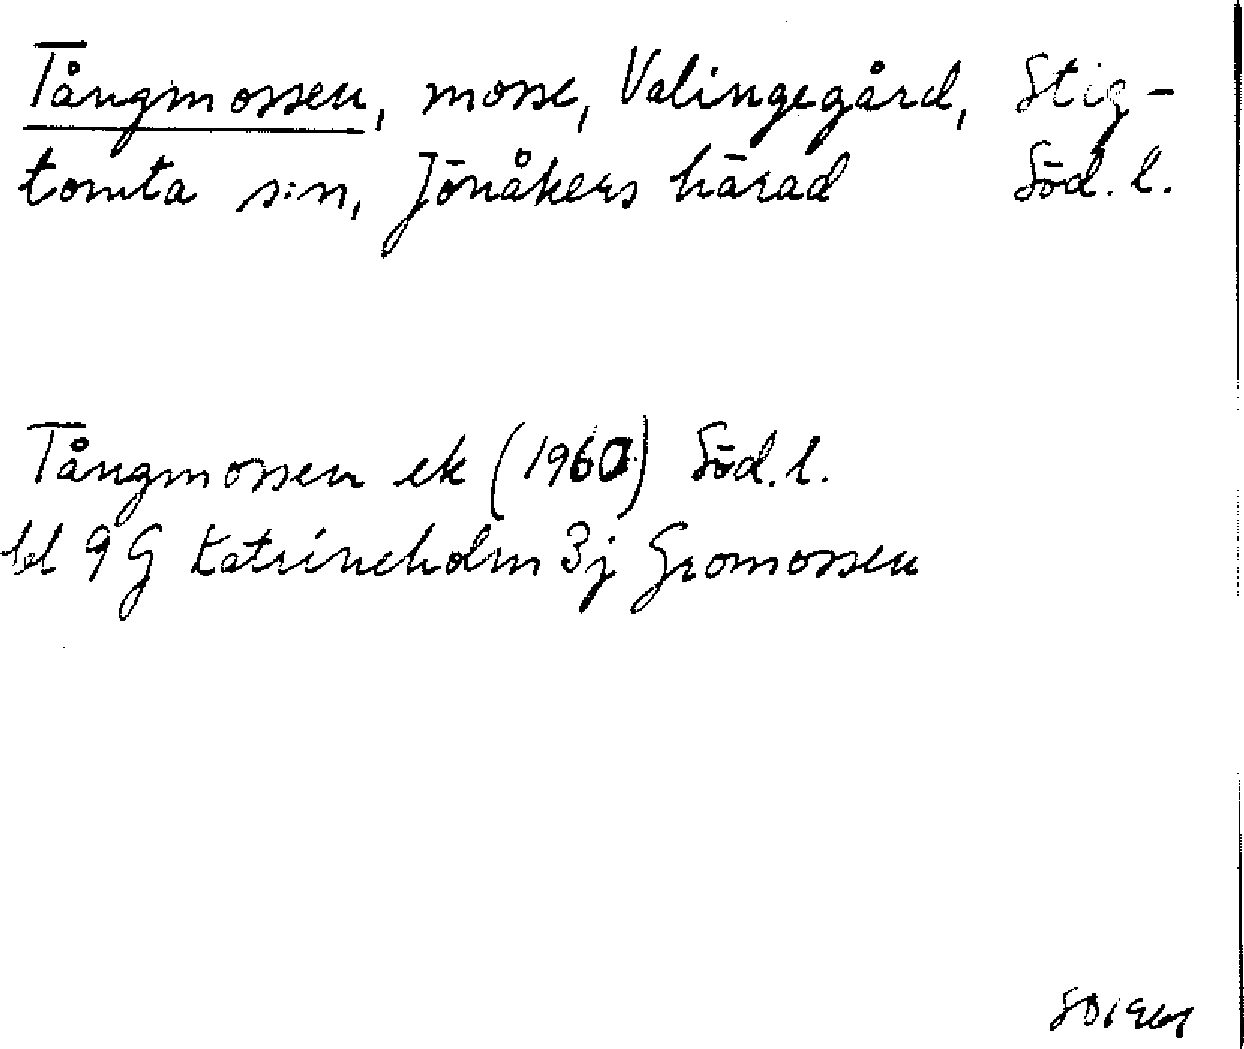 Tångmossen, mosse, Valingegård, Stig-
tomta s:n, Jönåkers härad Söd. l.
Tångmossen ek (1960) Söd. l.
bl 9G Katrineholm 3j Gromossen